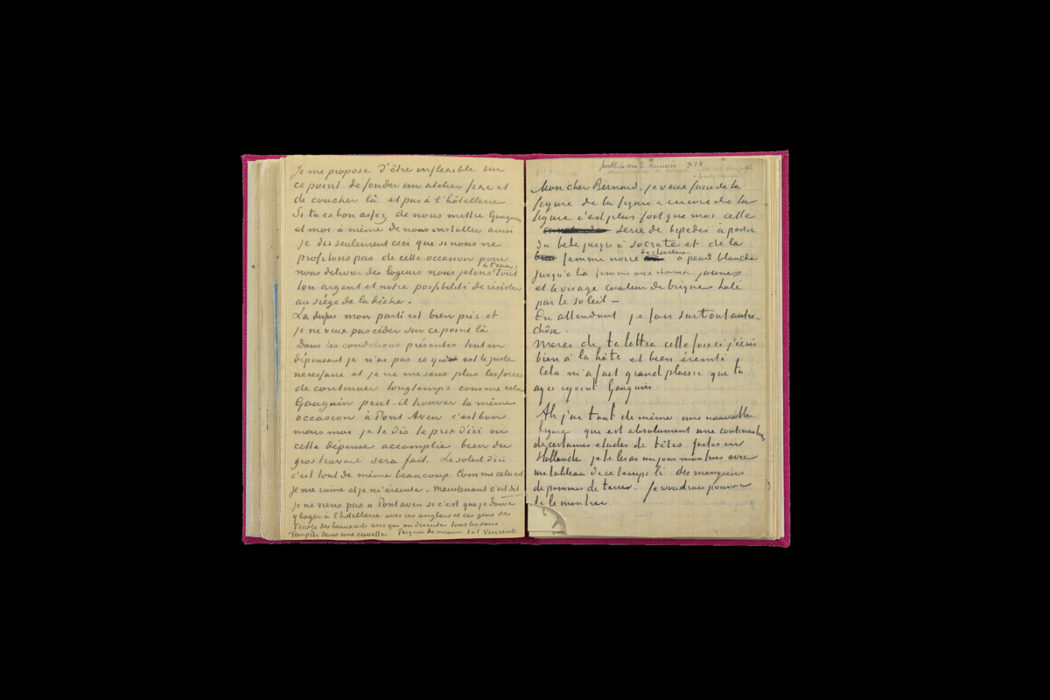 Je me propose d'être inflexible sur
ce point de fonder un atelier fixe et
de coucher là et pas à l'hôtellerie
Si tu es bon assez de nous mettre Gauguin
et moi à même de nous installer ainsi
je dis seulement ceci que si nous ne
profitons pas de cette occasion pour
nous delivrer des logeurs nous jetons à l'eau, tout
ton argent et notre possibilité de résister
au siège de la dèche.
La dessus mon parti est bien pris et
je ne veux pas céder sur ce point là
Dans les conditions présentes tout en
dépensant je n'ai pas ce qui est le juste
nécessaire et je ne me sens plus les forces
de continuer longtemps comme cela
Gauguin peut-il trouver la même
occasion à Pont Aven c'est bon
mais moi je te dis le prix d'ici ou
cette dépense accomplie bien du
gros travail sera fait. Le soleil d'ici
c'est tout de même beaucoup. Comme cela est
je me ruine et je m'éreinte. Maintenant c'est dit
je ne viens pas a Pontaven si c'est que je doive
y loger à l'hôtellerie avec ces anglais et ces gens de
l'ecole des beaux arts avec qui on discute tous les soirs
Tempête dans une cuvette Poignée de main, t. à t. Vincent
XIX
Mon cher Bernard. je veux faire de la
figure de la figure & encore de la
figure c'est plus fort que moi cette
serie de bipèdes à partir
du bébé jusqu'à Socrate et de la
femme noire de chevelure à peau blanche
jusqu'à la femme aux cheveux jaunes
et le visage couleur de brique halé
par le soleil —
En attendant je fais surtout autre
chôse.
Merci de ta lettre cette fois ci j'écris
bien à la hâte et bien éreinté
Cela m'a fait grand plaisir que tu
ayes rejoint Gauguin
Ah j'ai tout de même une nouvelle
figure qui est absolument une continuation
de certaines etudes de têtes faites en
Hollande je te les ai un jour montrées avec
un tableau de ce temps là des mangeurs
de pommes de terres. Je voudrais pouvoir
te le montrer.